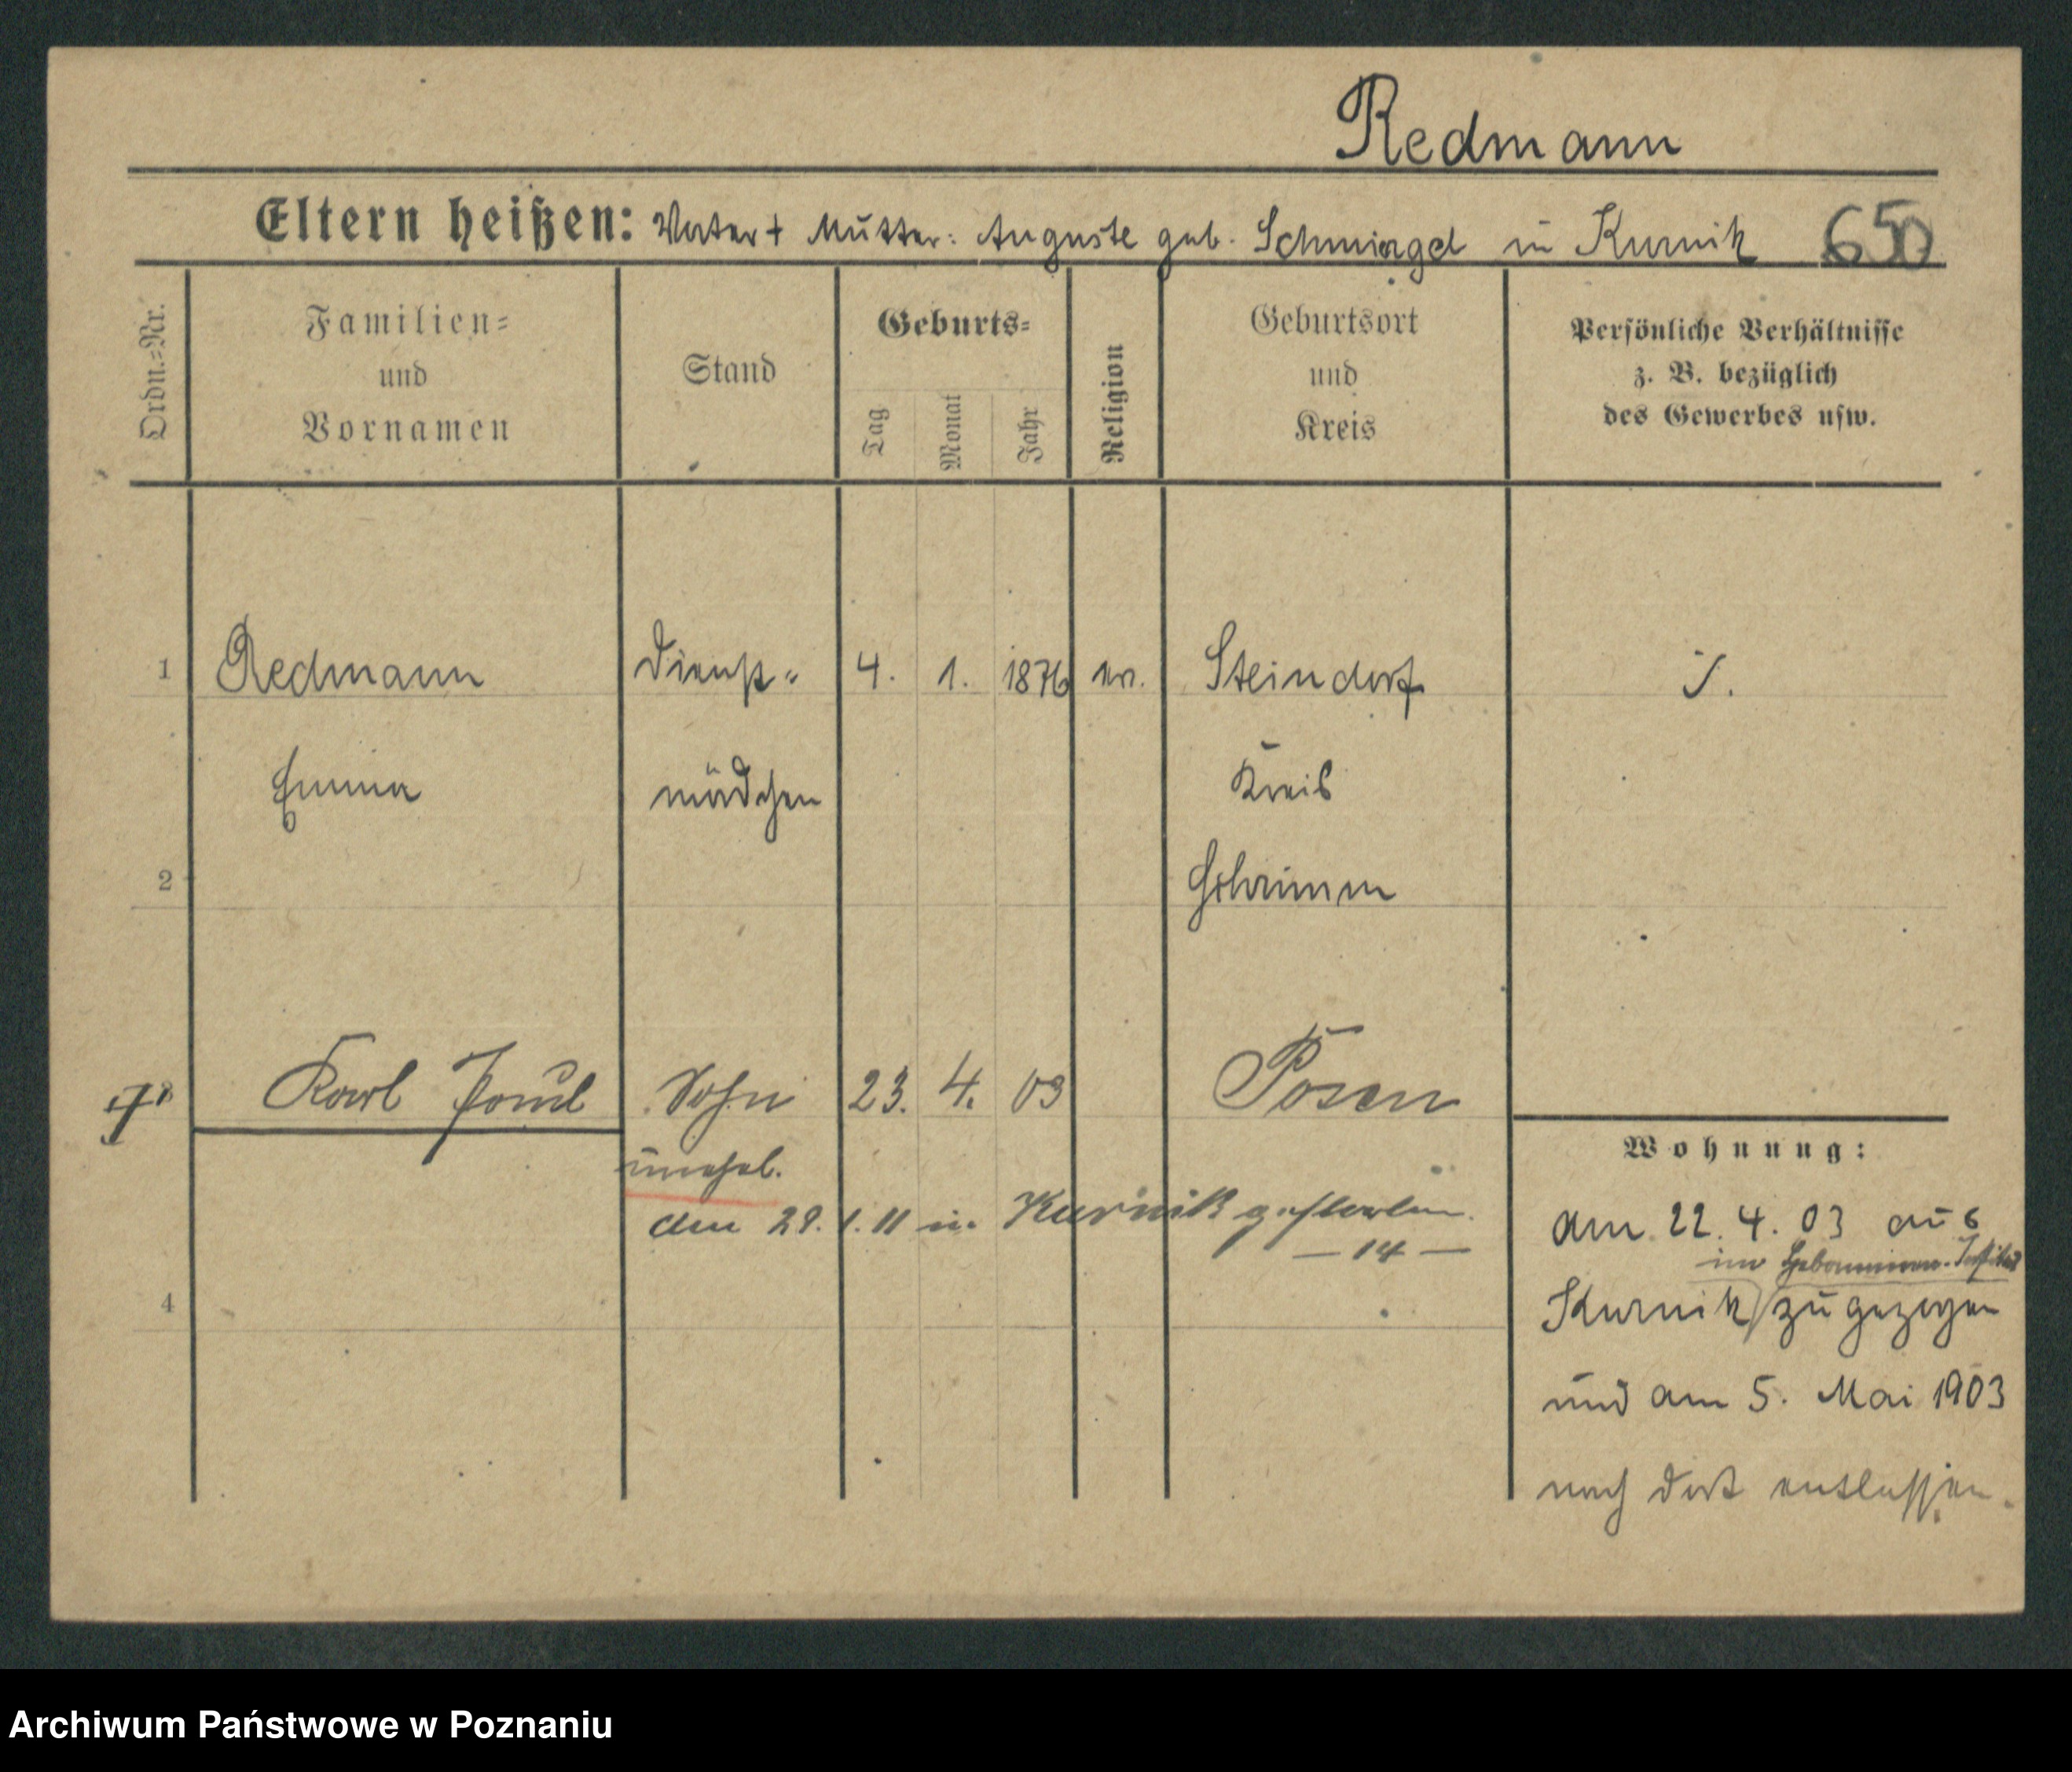 Redmann
Eltern heißen: Vater + Mutter: Auguste geb. Schmiegel in Kurnik 650
Ordn.=Nr.
Familien= und Vornamen
Stand
Geburts=
Tag
Monat
Jahr
Religion
Geburtsort und Kreis
Persönliche Verhältnisse z. B. bezüglich des Gewerbes usw.
1 Redmann Dienst- 4. 1. 1876 ev. Steindorf
Emma mädchen Kreis
2 Schrimm
Karl Paul Sohn 23. 4. 03 Posen
unehel.
den 29. 1. 11 in Kurnik gestorben.
— 14 —
4
Wohnung:
am 22. 4. 03 aus
im Hebammen-Institut
Kurnik zugezogen
und am 5. Mai 1903
nach dort entlassen.
Archiwum Państwowe w Poznaniu